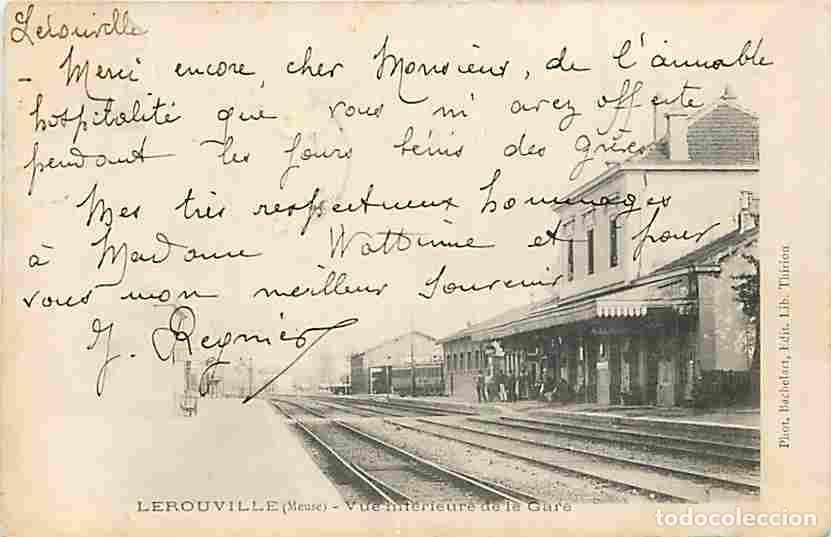 Lerouville
- Merci encore, cher Monsieur, de l'aimable
hospitalité que vous m'avez offerte
pendant les jours bénis des grèves
Mes très respectueux hommages
à Madame Wattinne et pour
vous mon meilleur souvenir
J. Regnier
LEROUVILLE (Meuse) - Vue intérieure de le Gare
Phot. Bachelart, Edit. Lib. Thirion
todocoleccion